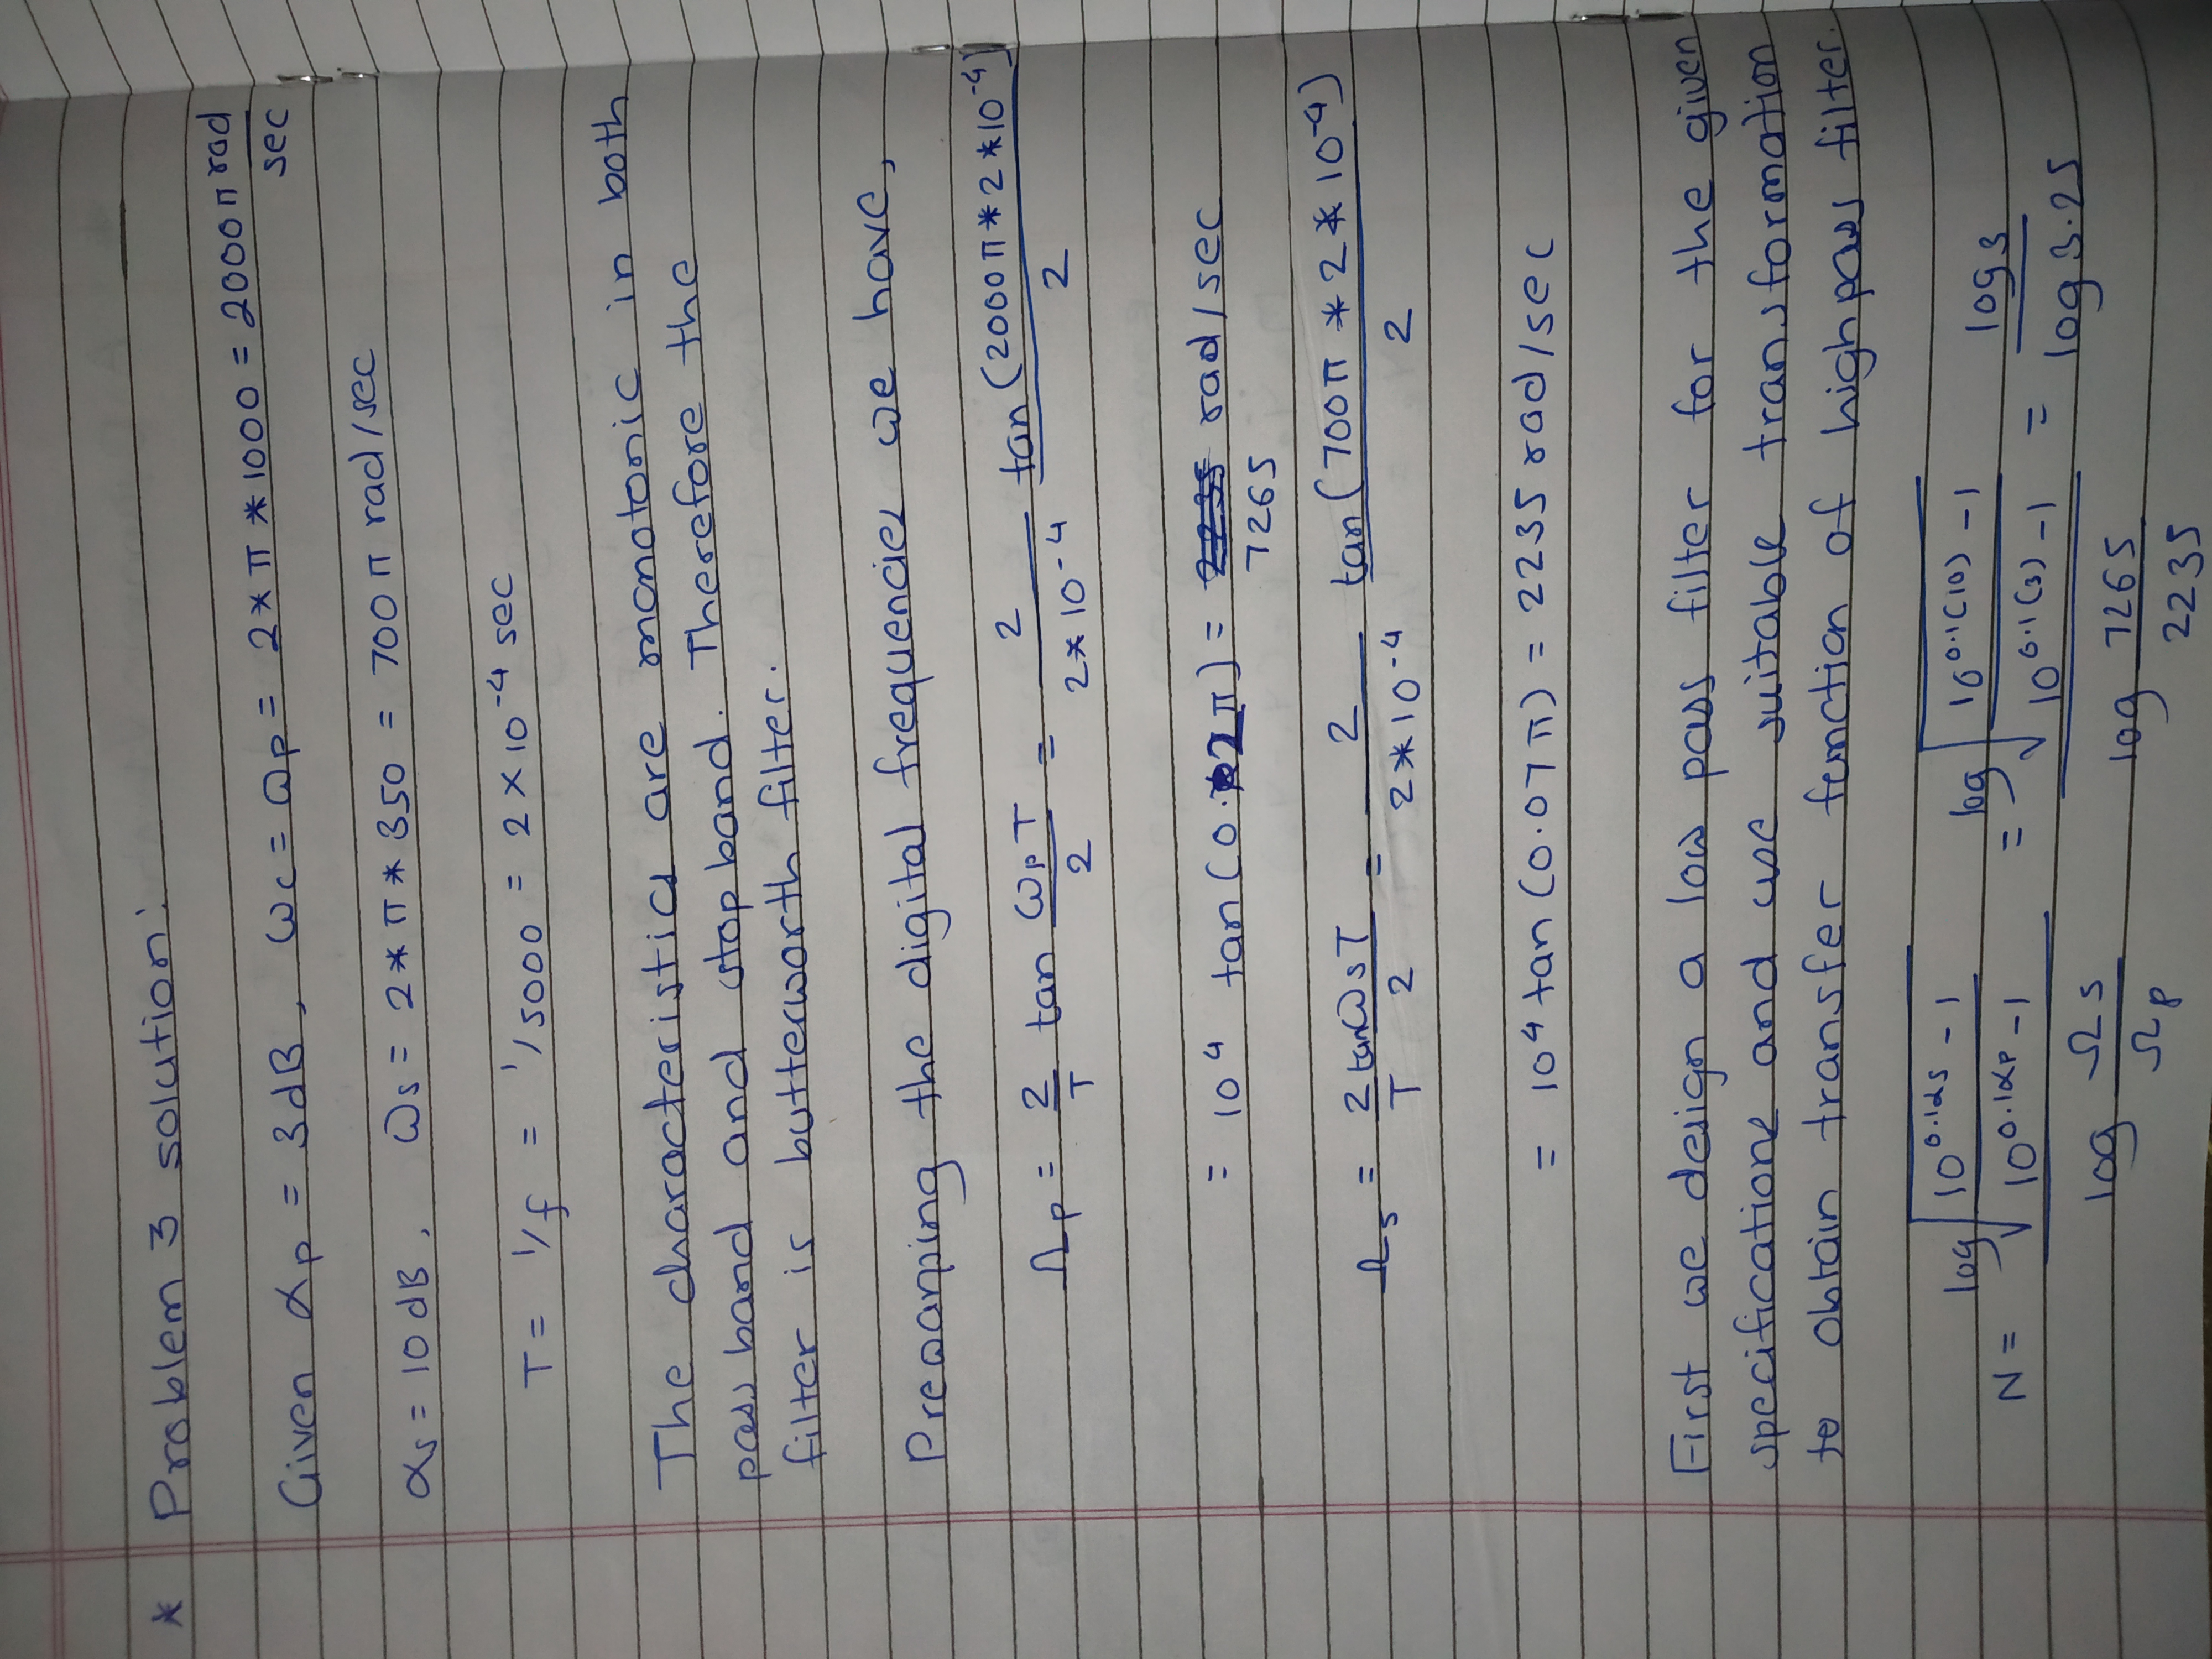 * Problem 3 solution:
Given αp = 3dB, ωc = ωp = 2*π*1000 = 2000π rad/sec
αs = 10 dB, ωs = 2*π*350 = 700π rad/sec
T = 1/f = 1/5000 = 2×10^-4 sec
The characteristics are monotonic in both
pass band and stop band. Therefore the
filter is butterworth filter.
Prewarping the digital frequencies we have,
Ωp = 2/T tan ωpT/2 = 2/(2*10^-4) tan (2000π*2*10^-4)/2
= 10^4 tan (0.2π) = 7265 rad/sec
Ωs = 2/T tan ωsT/2 = 2/(2*10^-4) tan (700π*2*10^-4)/2
= 10^4 tan (0.07π) = 2235 rad/sec
First we design a low pass filter for the given
specifications and use suitable transformation
to obtain transfer function of high pass filter.
N = log √((10^0.1αs - 1)/(10^0.1αp - 1)) / log (Ωs/Ωp) = log √((10^0.1(10) - 1)/(10^0.1(3) - 1)) / log (7265/2235) = log 3 / log 3.25